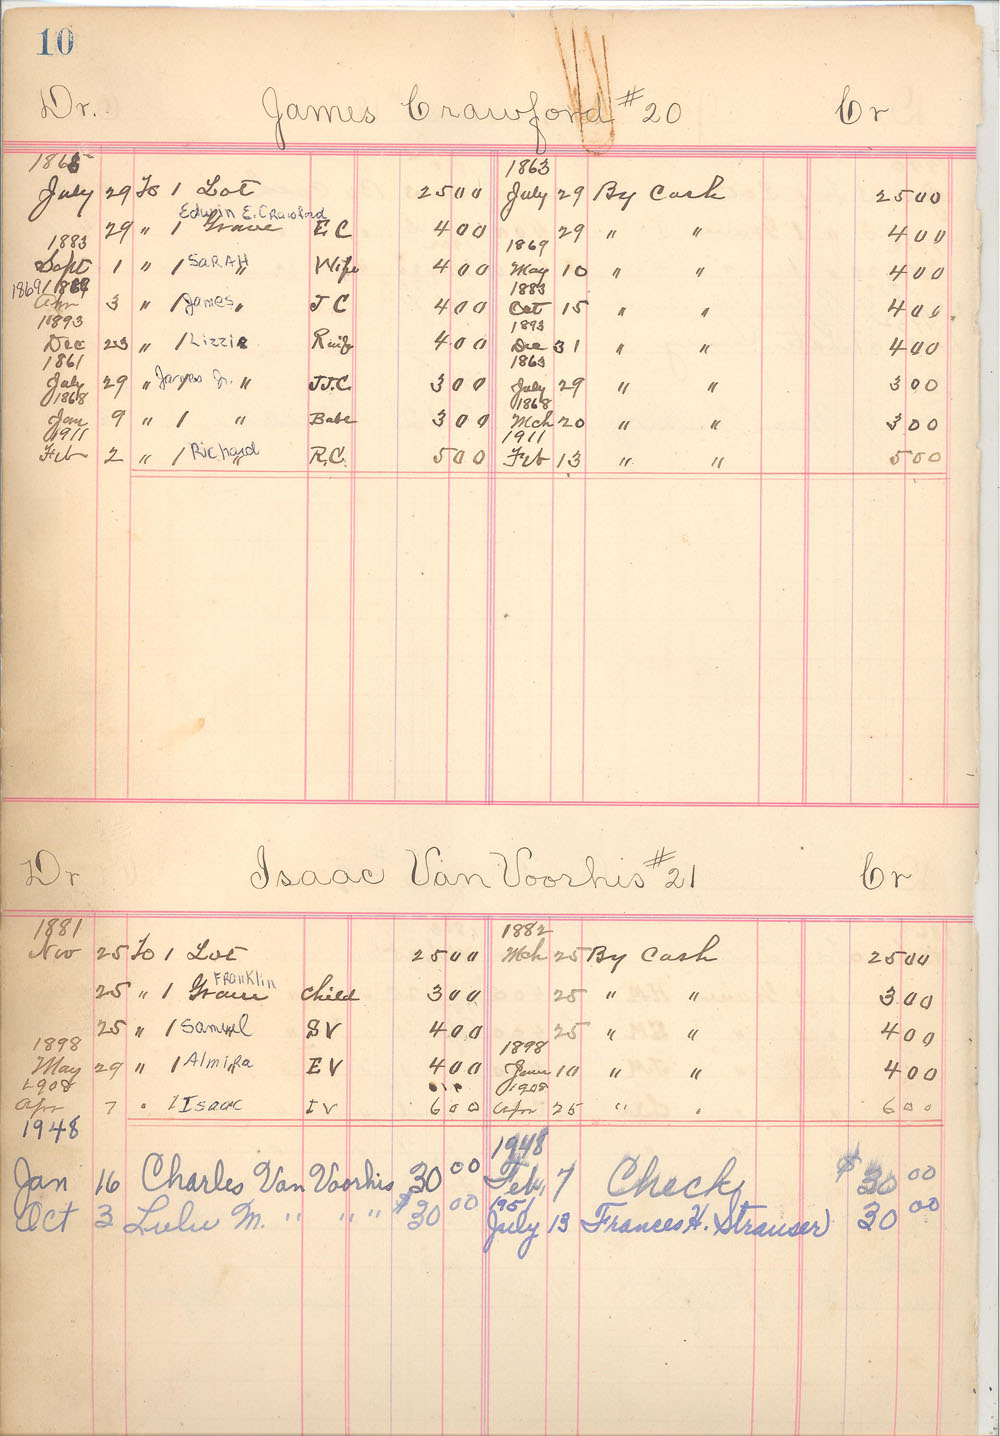 10
Dr. James Crawford #20 Cr
1863
July 29 To 1 Lot 25 00 July 29 By Cash 25 00
Edwin E. Crawford
29 " 1 Grave E C 4 00 29 " " 4 00
1883 1869
Sept 1 " 1 SARAH " Wife 4 00 May 10 " " 4 00
1869 1883
Apr 3 " 1 James " J C 4 00 Oct 15 " " 4 00
1893 1893
Dec 23 " 1 Lizzie 4 00 Dec 31 " " 4 00
1861 1863
July 29 " James Jr. " J.J.C 3 00 July 29 " " 3 00
1868 1868
Jan 9 " 1 " Babe 3 00 Mch 20 " " 3 00
1911 1911
Feb 2 " 1 Richard " R.C. 5 00 Feb 13 " " 5 00
Dr Isaac Van Voorhis #21 Cr
1881 1882
Nov 25 To 1 Lot 25 00 Mch 25 By Cash 25 00
FRanklin
25 " 1 Grave Child 3 00 25 " " 3 00
25 " 1 Samuel S V 4 00 25 " " 4 00
1898 1898
May 29 " 1 Almira " E V 4 00 June 10 " " 4 00
1908 1908
Apr 7 " 1 Isaac I V 6 00 Apr 25 " " 6 00
1948 1948
Jan 16 Charles Van Voorhis 30 00 Feb, 7 Check $ 30 00
1951
Oct 3 Lulu M. " " " $ 30 00 July 13 Frances H. Strauser) 30 00